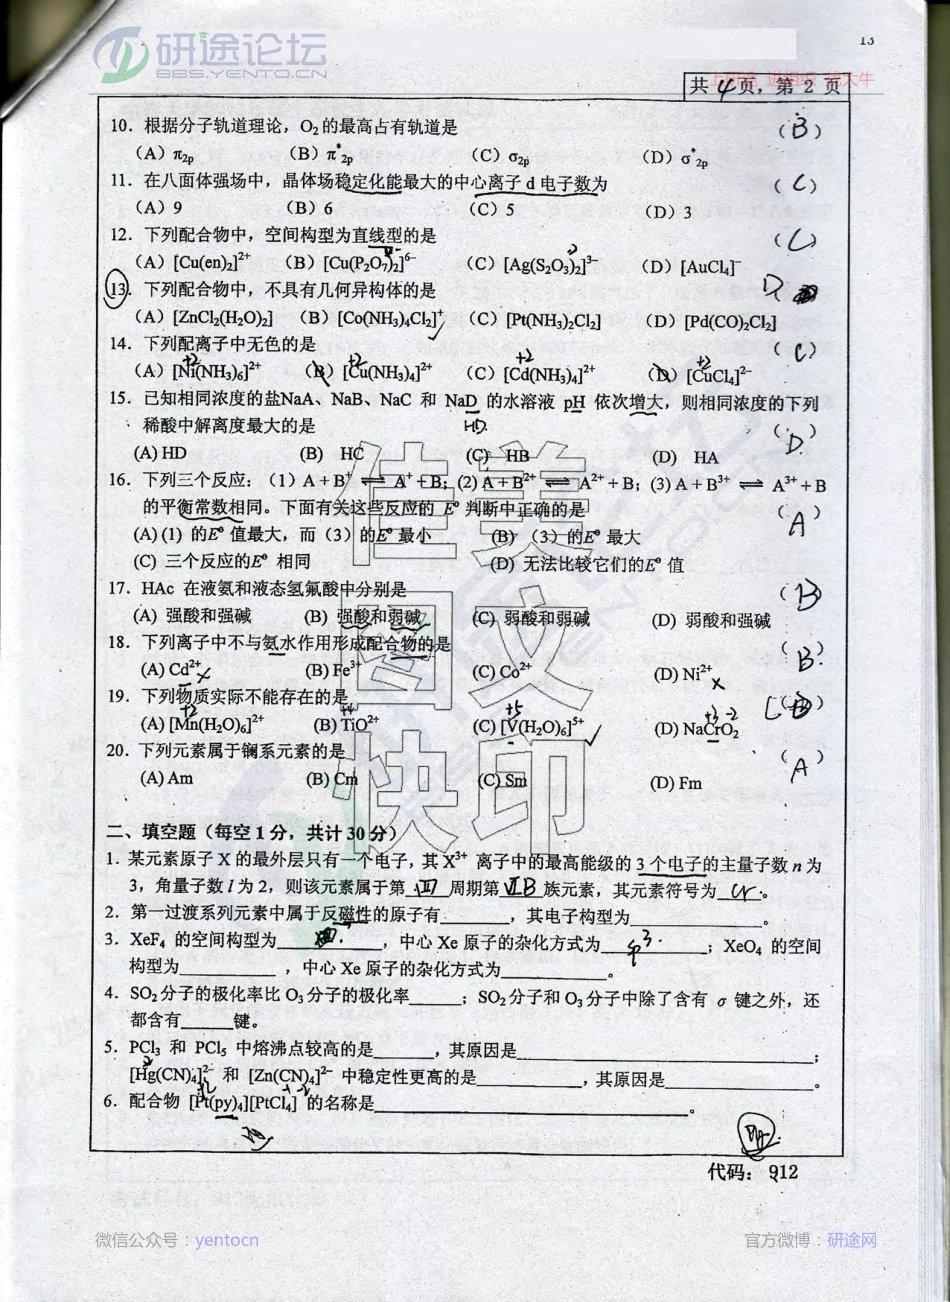 研途论坛
BBS.YENTO.CN
13
共4页，第 2 页
10．根据分子轨道理论，O₂的最高占有轨道是 （B）
（A）π₂p （B）π*₂p （C）σ₂p （D）σ*₂p
11．在八面体强场中，晶体场稳定化能最大的中心离子 d 电子数为 （C）
（A）9 （B）6 （C）5 （D）3
12．下列配合物中，空间构型为直线型的是 （C）
（A）[Cu(en)₂]²⁺ （B）[Cu(P₂O₇)₂]⁶⁻ （C）[Ag(S₂O₃)₂]³⁻ （D）[AuCl₄]⁻
13．下列配合物中，不具有几何异构体的是 D
（A）[ZnCl₂(H₂O)₂] （B）[Co(NH₃)₄Cl₂]⁺ （C）[Pt(NH₃)₂Cl₂] （D）[Pd(CO)₂Cl₂]
14．下列配离子中无色的是 （C）
（A）[Ni(NH₃)₆]²⁺ （B）[Cu(NH₃)₄]²⁺ （C）[Cd(NH₃)₄]²⁺ （D）[CuCl₄]²⁻
15．已知相同浓度的盐NaA、NaB、NaC 和 NaD 的水溶液 pH 依次增大，则相同浓度的下列
稀酸中解离度最大的是 HD. （D.）
(A) HD (B) HC (C) HB (D) HA
16．下列三个反应：（1）A + B⁺ ⇌ A⁺ + B；(2) A + B²⁺ ⇌ A²⁺ + B；(3) A + B³⁺ ⇌ A³⁺ + B
的平衡常数相同。下面有关这些反应的 E° 判断中正确的是 （A）
(A) (1) 的E° 值最大，而（3）的E° 最小 (B) （3）的E° 最大
(C) 三个反应的E° 相同 (D) 无法比较它们的E° 值
17．HAc 在液氨和液态氢氟酸中分别是 （B）
(A) 强酸和强碱 (B) 强酸和弱碱 (C) 弱酸和弱碱 (D) 弱酸和强碱
18．下列离子中不与氨水作用形成配合物的是 （B?）
(A) Cd²⁺ (B) Fe³⁺ (C) Co²⁺ (D) Ni²⁺
19．下列物质实际不能存在的是 C
(A) [Mn(H₂O)₆]²⁺ (B) TiO²⁺ (C) [V(H₂O)₆]⁵⁺ (D) NaCrO₂
20．下列元素属于镧系元素的是 （A）
(A) Am (B) Cm (C) Sm (D) Fm
二、填空题（每空 1 分，共计 30 分）
1．某元素原子 X 的最外层只有一个电子，其 X³⁺ 离子中的最高能级的 3 个电子的主量子数 n 为
3，角量子数 l 为 2，则该元素属于第 四 周期第 ⅥB 族元素，其元素符号为 Cr。
2．第一过渡系列元素中属于反磁性的原子有______，其电子构型为______。
3．XeF₄ 的空间构型为______，中心 Xe 原子的杂化方式为______；XeO₄ 的空间
构型为______，中心 Xe 原子的杂化方式为______。
4．SO₂分子的极化率比 O₃分子的极化率______；SO₂分子和 O₃分子中除了含有 σ 键之外，还
都含有______键。
5．PCl₃ 和 PCl₅ 中熔沸点较高的是______，其原因是______；
[Hg(CN)₄]²⁻ 和 [Zn(CN)₄]²⁻ 中稳定性更高的是______，其原因是______。
6．配合物 [Pt(py)₄][PtCl₄] 的名称是______。
佳美
图文
快印
代码：912
微信公众号：yentocn
官方微博：研途网